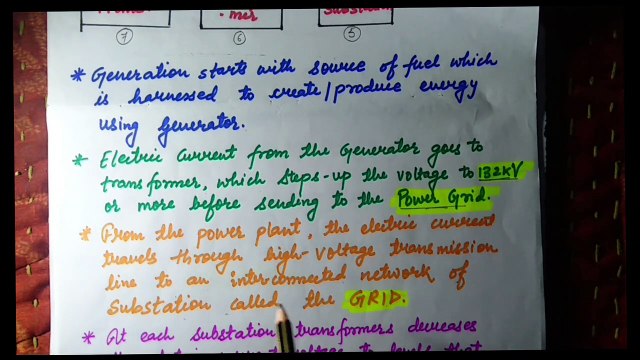 mer
⑦ ⑥ ⑤
* Generation starts with source of fuel which
is harnessed to create/produce energy
using Generator.
* Electric current from the Generator goes to
transformer, which steps-up the voltage to 132kV
or more before sending to the Power Grid.
* From the power plant, the electric current
travels through high-voltage transmission
line to an interconnected network of
Substation called the GRID.
* At each substation transformers decreases